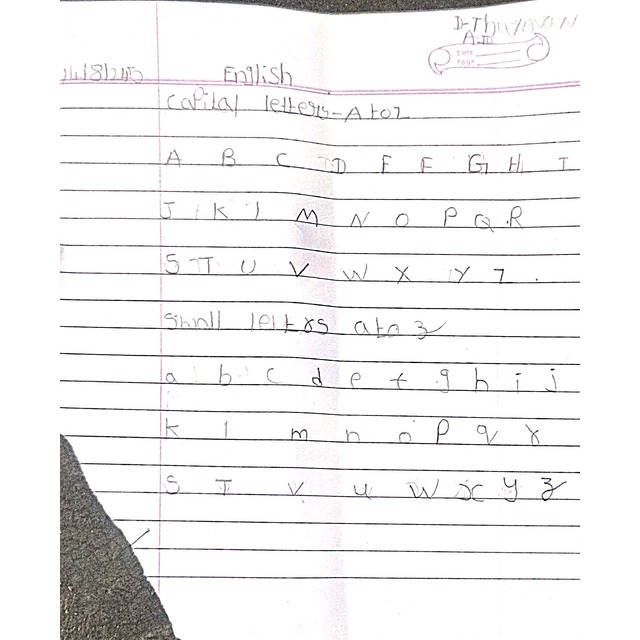 A-III
Date
Page
English
Capital letters-A to Z
A B C D E F G H I
J K L M N O P Q R
S T U V W X Y Z .
small letters a to z
a b c d e f g h i j
k l m n o p q r
S T V u w x y z